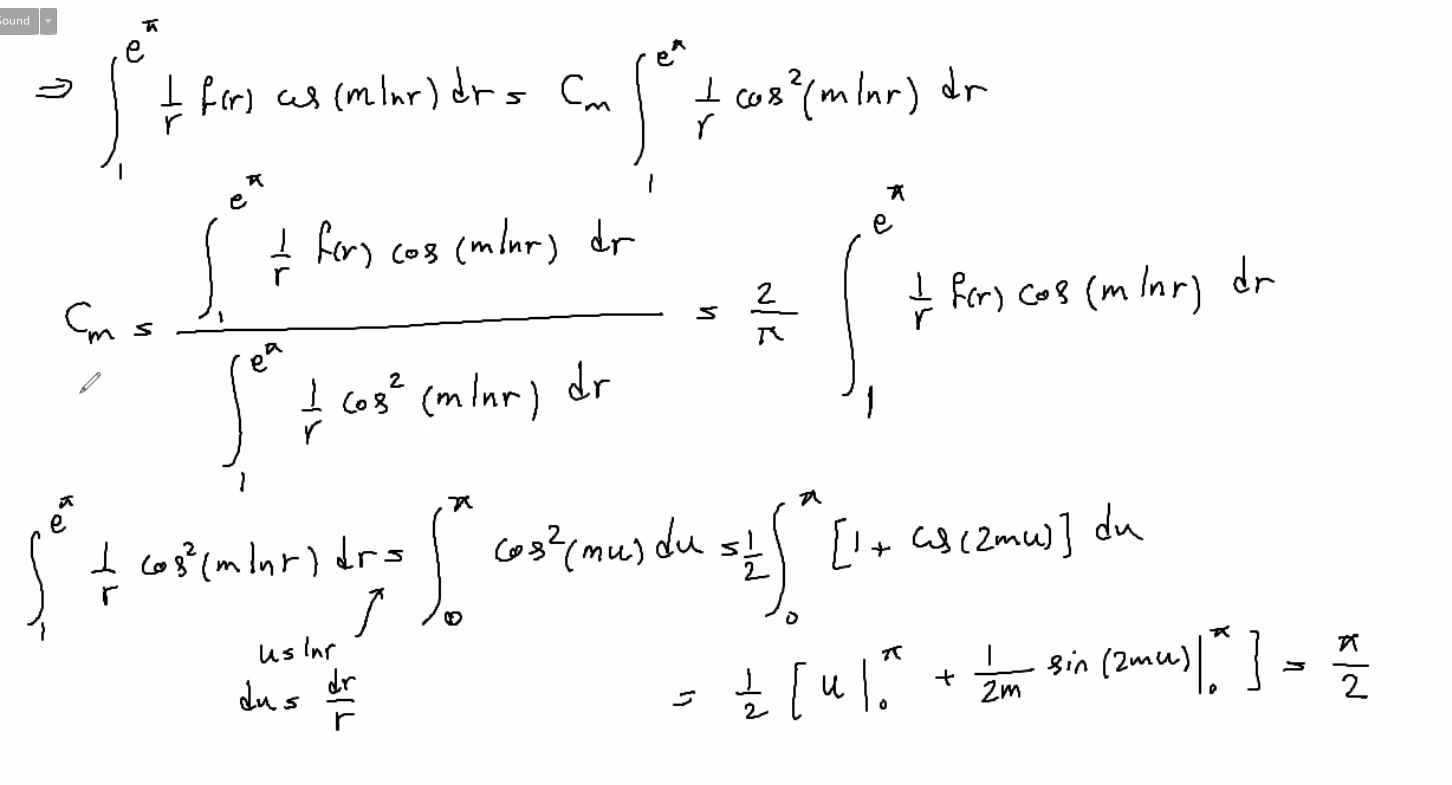 Sound
⇒ ∫₁^{e^π} 1/r f(r) cos(m ln r) dr = C_m ∫₁^{e^π} 1/r cos²(m ln r) dr
C_m = (∫₁^{e^π} 1/r f(r) cos(m ln r) dr) / (∫₁^{e^π} 1/r cos²(m ln r) dr) = 2/π ∫₁^{e^π} 1/r f(r) cos(m ln r) dr
∫₁^{e^π} 1/r cos²(m ln r) dr = ∫₀^π cos²(mu) du = 1/2 ∫₀^π [1 + cos(2mu)] du
u = ln r
du = dr/r
= 1/2 [u|₀^π + 1/2m sin(2mu)|₀^π] = π/2